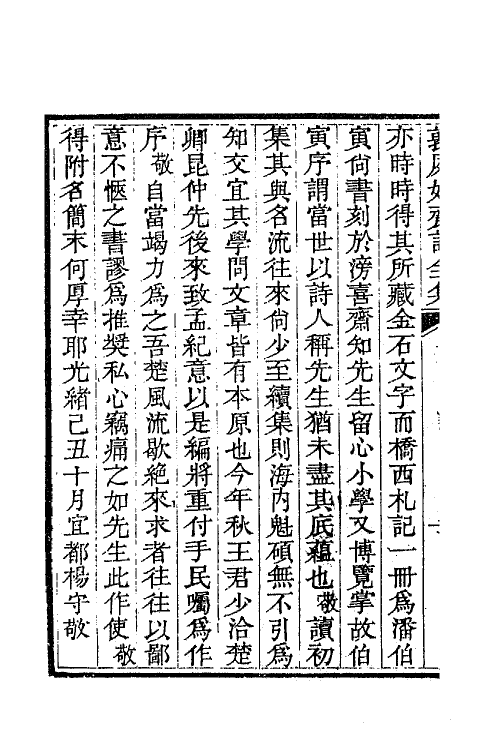 亦時時得其所藏金石文字而橋西札記一冊爲潘伯
寅尙書刻於滂喜齋知先生留心小學又博覽掌故伯
寅序謂當世以詩人稱先生猶未盡其底蘊也敬讀初
集其與名流往來尙少至續集則海内魁碩無不引爲
知交宜其學問文章皆有本原也今年秋王君少洽楚
卿昆仲先後來致孟紀意以是編將重付手民囑爲作
序敬自當竭力爲之吾楚風流歇絕來求者往往以鄙
意不愜之書謬爲推奬私心竊痛之如先生此作使敬
得附名簡末何厚幸耶光緒己丑十月宜都楊守敬